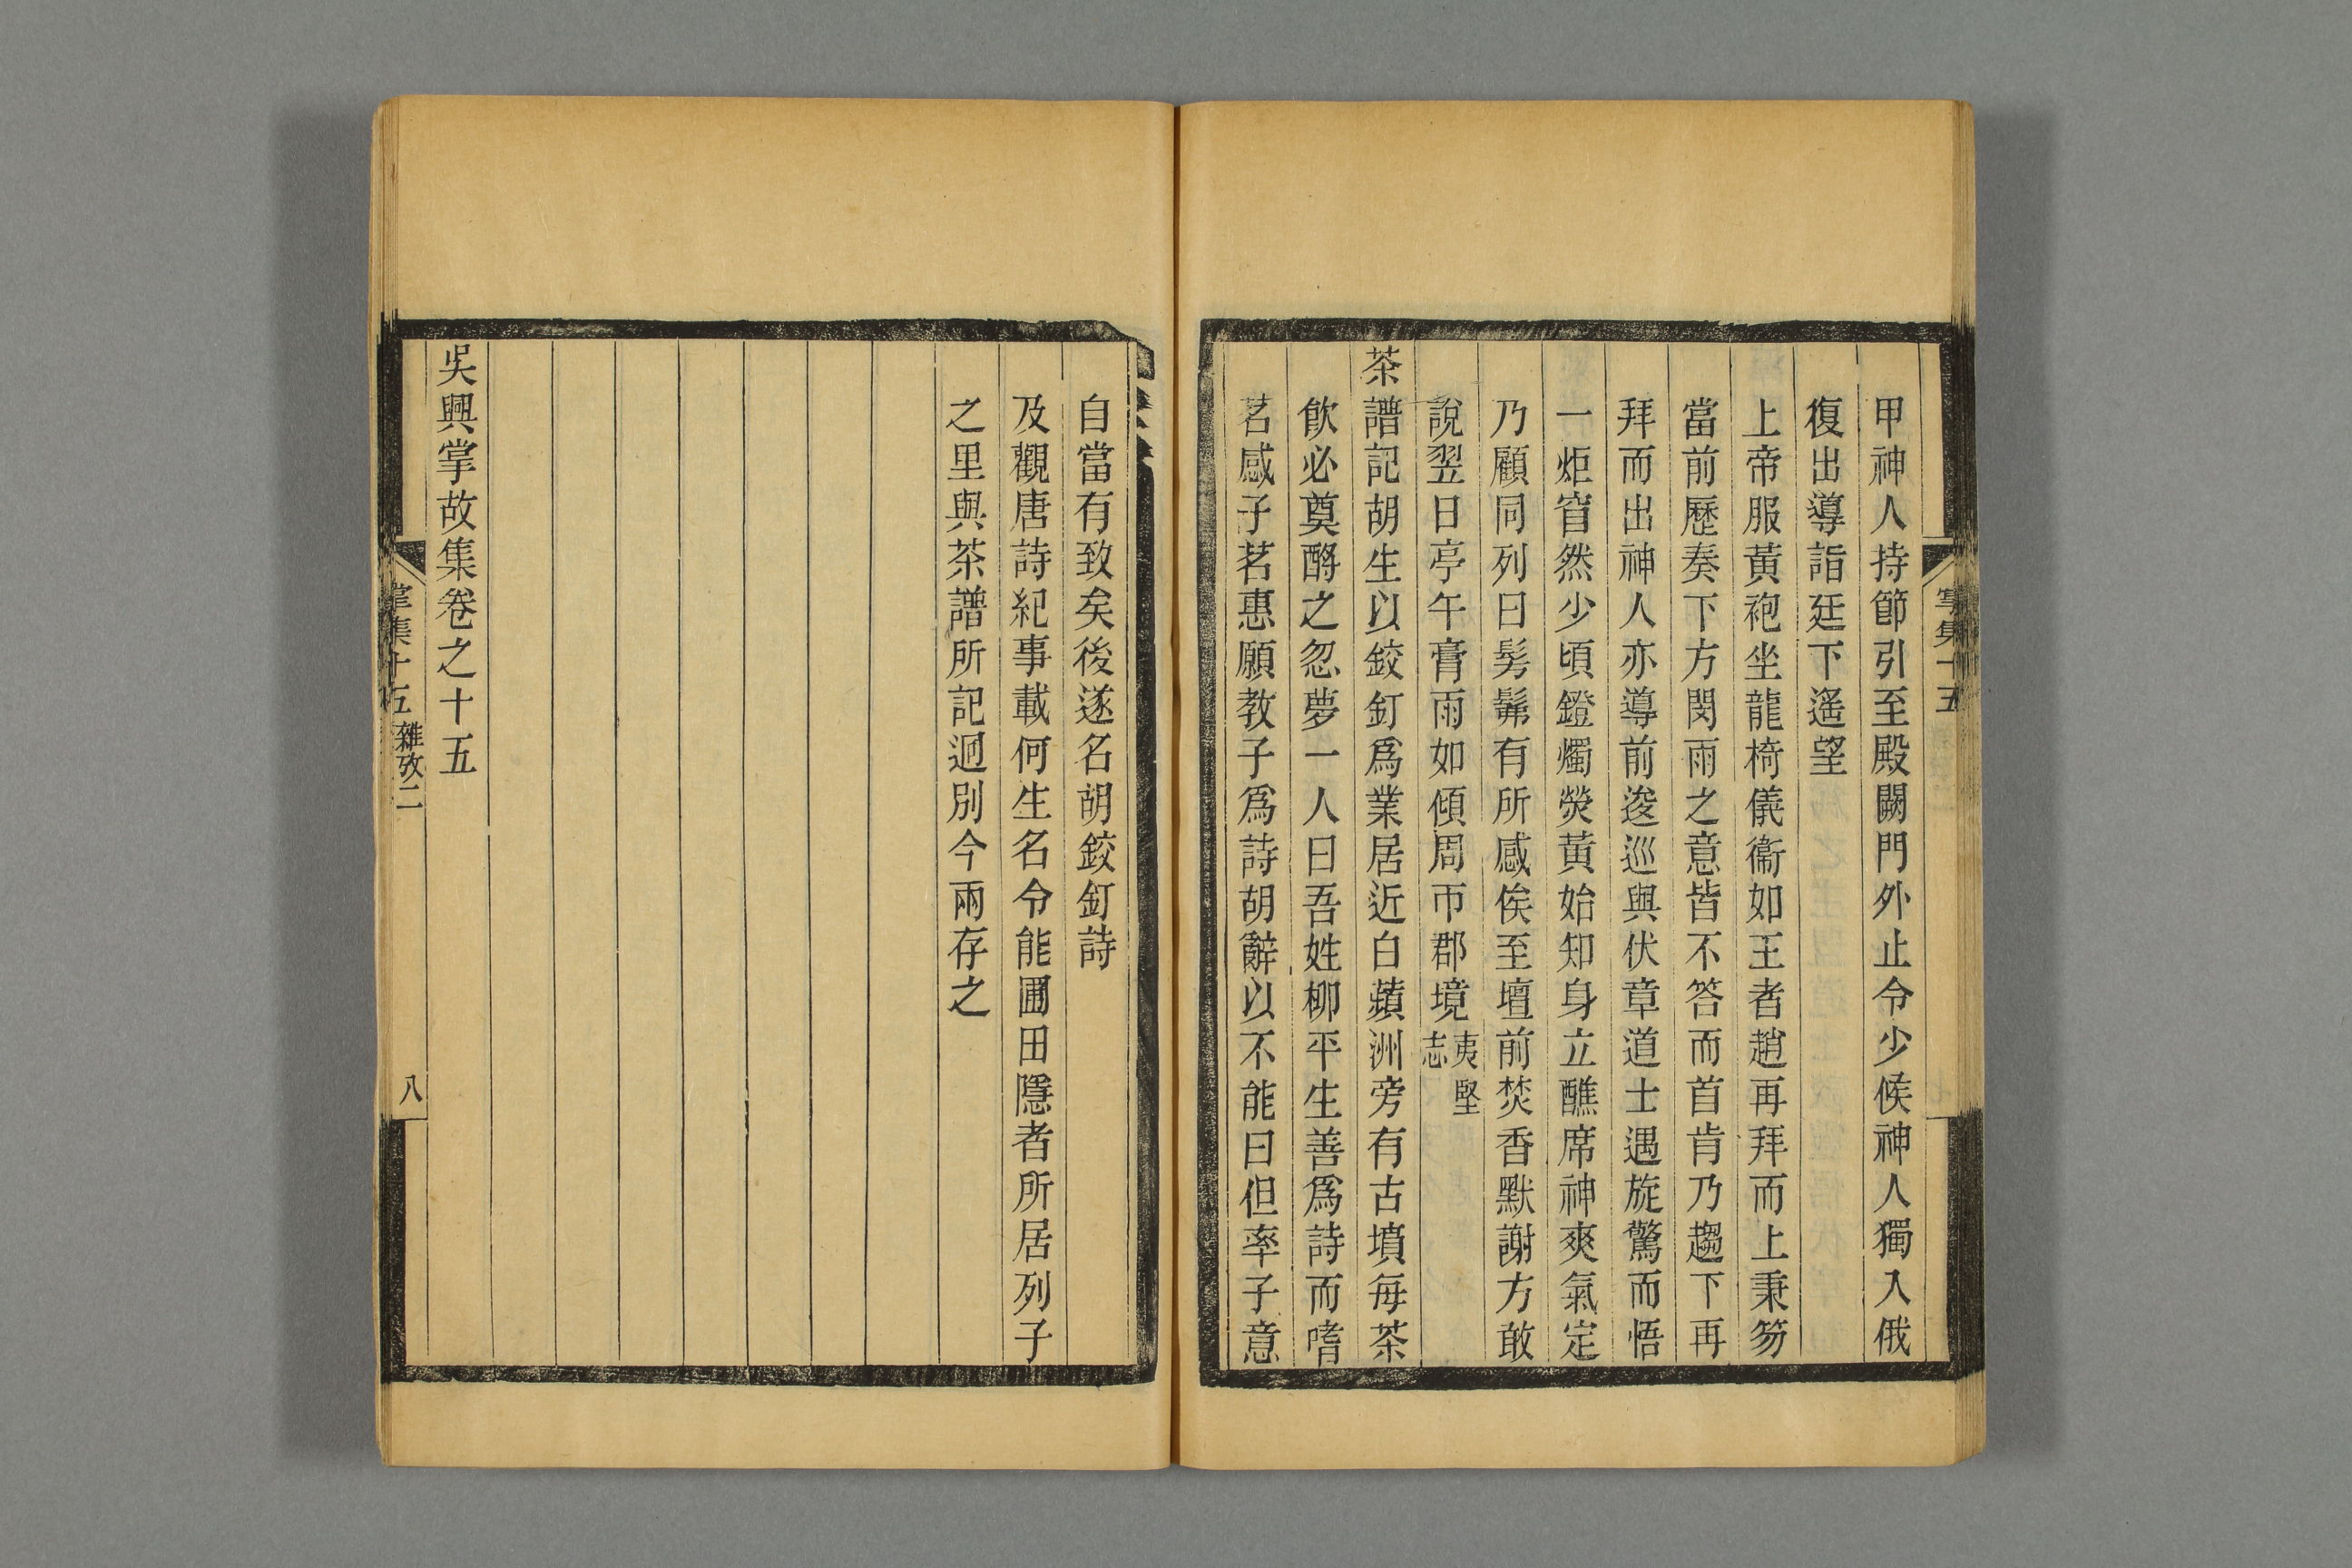 甲神人持節引至殿闕門外止令少候神人獨入俄
復出導詣廷下遙望
上帝服黃袍坐龍椅儀衞如王者趙再拜而上秉笏
當前歷奏下方閔雨之意皆不答而首肯乃趨下再
拜而出神人亦導前逡巡與伏章道士遇旋驚而悟
一炬窅然少頃鐙燭熒黃始知身立醮席神爽氣定
乃顧同列曰髣髴有所感俟至壇前焚香默謝方敢
說翌日亭午膏雨如傾周帀郡境夷堅志
茶譜記胡生以鉸釘爲業居近白蘋洲旁有古墳每茶
飮必奠酹之忽夢一人曰吾姓柳平生善爲詩而嗜
茗感子茗惠願教子爲詩胡辭以不能曰但率子意
自當有致矣後遂名胡鉸釘詩
及觀唐詩紀事載何生名令能圃田隱者所居列子
之里與茶譜所記迥別今兩存之
吳興掌故集卷之十五
掌集十五 雜攷二 八